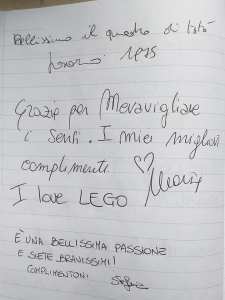 Bellissimo il quadro di totò
1975
Grazie per Meravigliare
i sensi. I miei migliori
complimenti ♡ Maria
I love LEGO
È UNA BELLISSIMA PASSIONE
E SIETE BRAVISSIMI!
COMPLIMENTONI